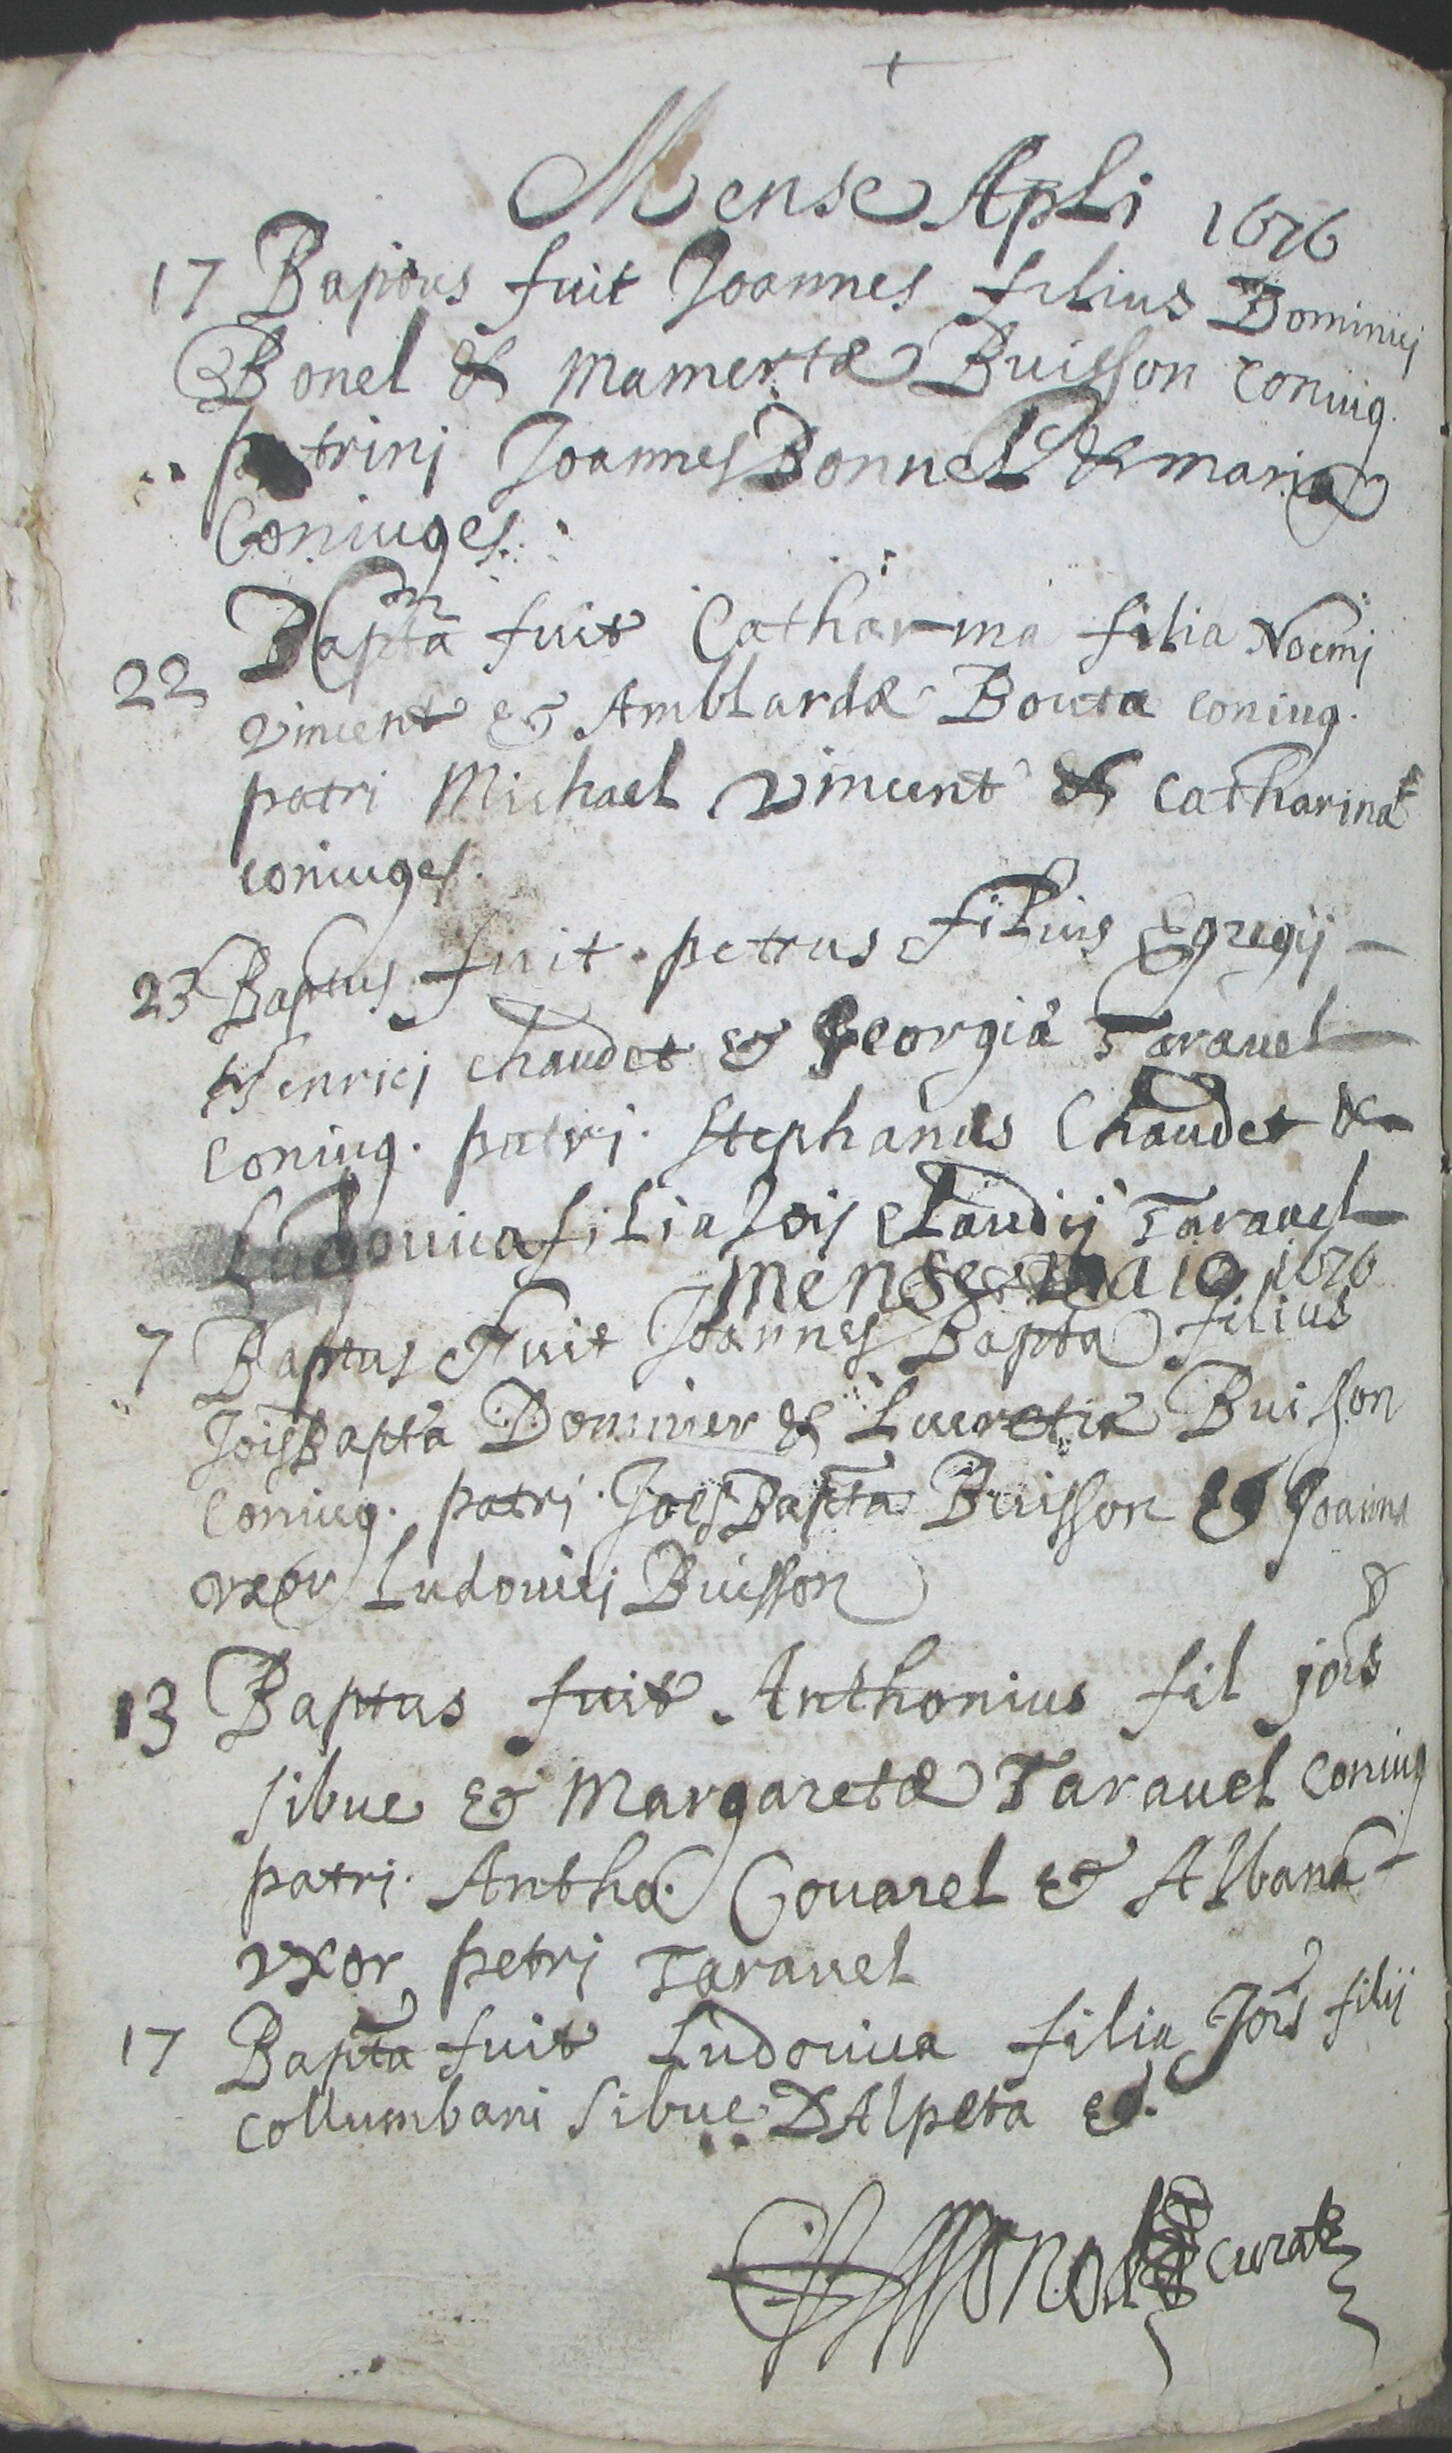 Mense Apli 1676
17 Baptus fuit Joannes filius Dominici
Bonel & Mamertæ Buisson coniug.
patrinj Joannes Bonnel & maria
Coniuges.
22 Bapta fuit Catharina filia Noemj
vincent & Amblardæ Bouta coniug.
patri Michael vincent & Catharina
coniuges.
23 Baptus fuit petrus filius Egregij
Henricj chaudet & Georgiæ Taravel
coniug. patrj. Stephanus Chaudet &
Ludovica filia Jois Claudij Taravel
mense maio 1676
7 Baptus fuit Joannes Bapta filius
Jois Bapta & Lucretiæ Buisson
coniug. patrj. Joes Bapta Buisson & Joanna
vxor Ludovicj Buisson
13 Baptus fuit Anthonius fil jois
sibue & Margaretæ Taravel coniug
patrj. Antho. Couarel & Albana
vxor petrj Taravel
17 Bapta fuit Ludovica filia Jois filij
collumbani sibue DAlpeta &.
curatus